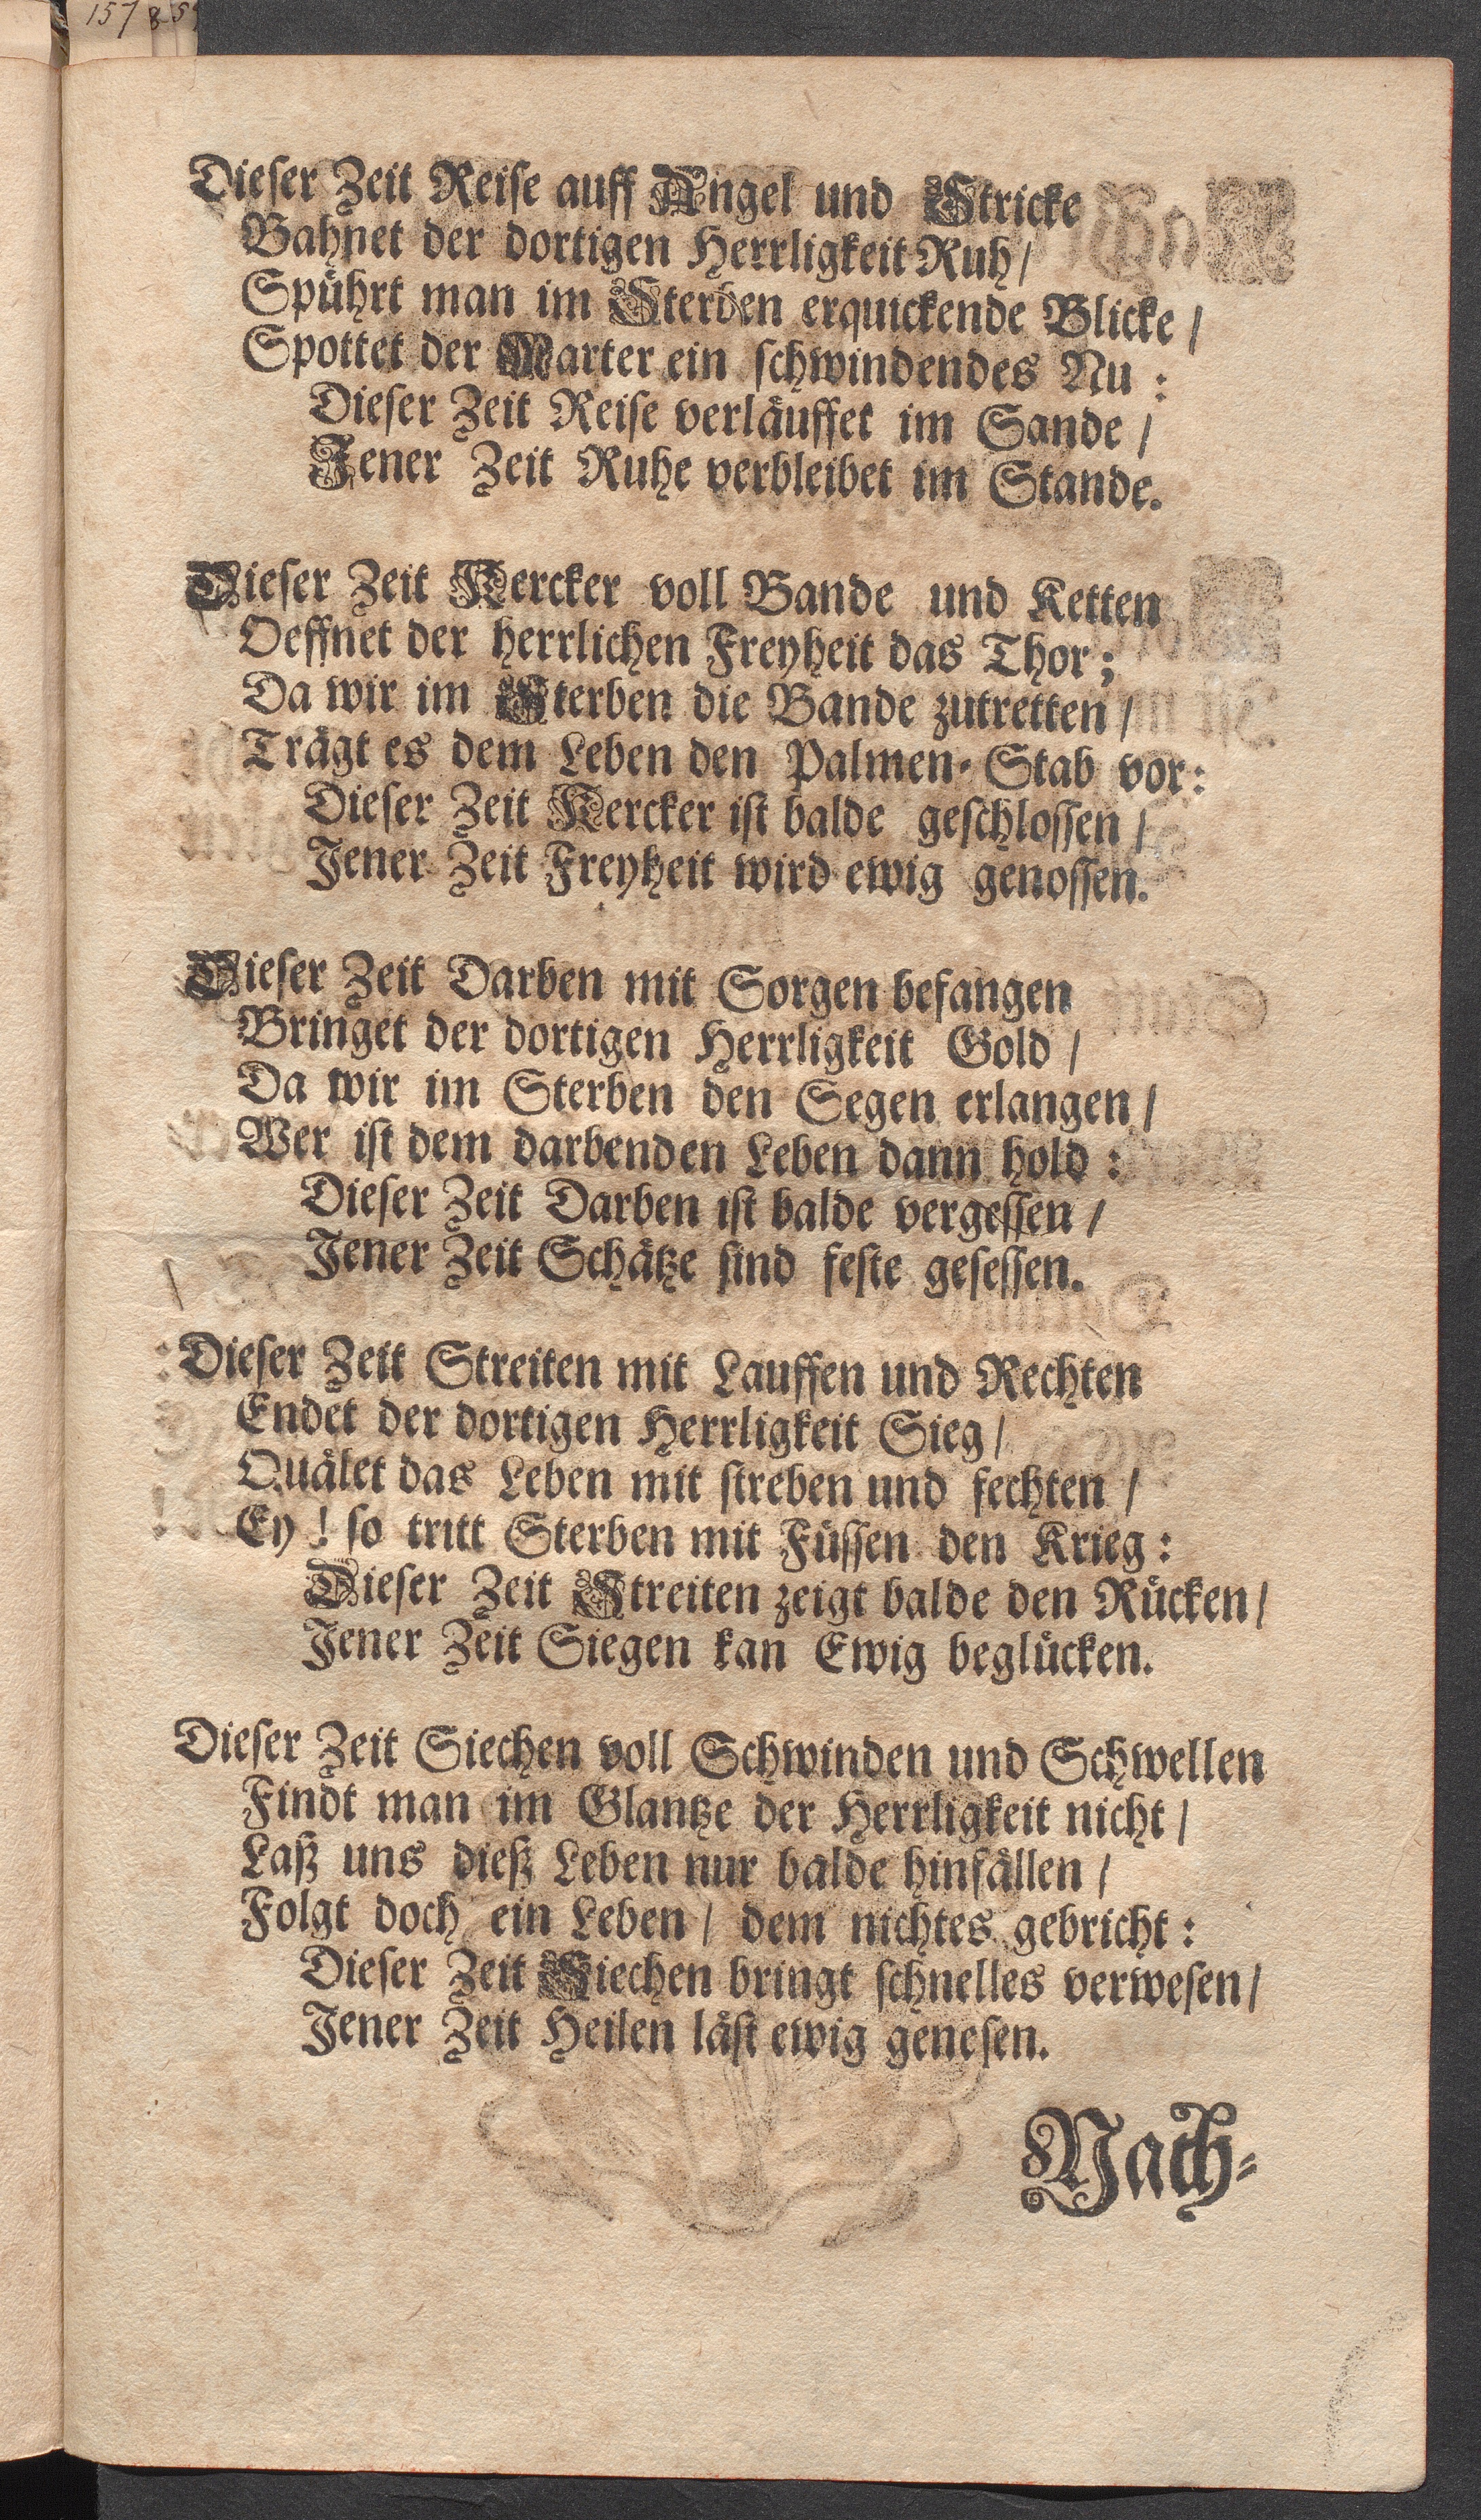 157
Dieser Zeit Reise auff Angel und Stricke
Bahnet der dortigen Herrligkeit Ruh /
Spührt man im Sterben erquickende Blicke /
Spottet der Marter ein schwindendes Nu :
Dieser Zeit Reise verläuffet im Sande /
Jener Zeit Ruhe verbleibet im Stande.
Dieser Zeit Kercker voll Bande und Ketten
Oeffnet der herrlichen Freyheit das Thor ;
Da wir im Sterben die Bande zutretten /
Trägt es dem Leben den Palmen-Stab vor :
Dieser Zeit Kercker ist balde geschlossen /
Jener Zeit Freyheit wird ewig genossen.
Dieser Zeit Darben mit Sorgen befangen
Bringet der dortigen Herrligkeit Gold /
Da wir im Sterben den Segen erlangen /
Wer ist dem darbenden Leben dann hold :
Dieser Zeit Darben ist balde vergessen /
Jener Zeit Schätze sind feste gesessen.
Dieser Zeit Streiten mit Lauffen und Rechten
Endet der dortigen Herrligkeit Sieg /
Quälet das Leben mit streben und fechten /
Ey ! so tritt Sterben mit Füssen den Krieg :
Dieser Zeit Streiten zeigt balde den Rücken /
Jener Zeit Siegen kan Ewig beglücken.
Dieser Zeit Siechen voll Schwinden und Schwellen
Findt man im Glantze der Herrligkeit nicht /
Laß uns dieß Leben nur balde hinfällen /
Folgt doch ein Leben / dem nichtes gebricht :
Dieser Zeit Siechen bringt schnelles verwesen /
Jener Zeit Heilen läst ewig genesen.
Nach-